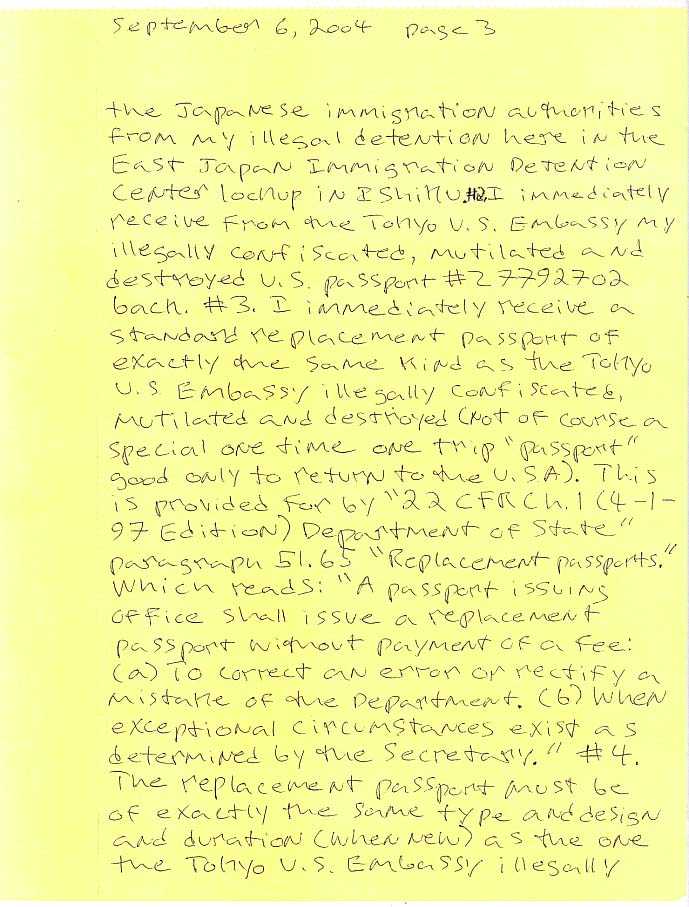 September 6, 2004 page 3
the Japanese immigration authorities
from my illegal detention here in the
East Japan Immigration Detention
Center lockup in Ishiku. #2. I immediately
receive from the Tokyo U.S. Embassy my
illegally confiscated, mutilated and
destroyed U.S. passport #27792702
back. #3. I immediately receive a
standard replacement passport of
exactly the same kind as the Tokyo
U.S Embassy illegally confiscated,
mutilated and destroyed (not of course a
special one time one trip "passport"
good only to return to the U.SA). This
is provided for by "22 CFR Ch. 1 (4-1-
97 Edition) Department of State"
paragraph 51.65 "Replacement passports."
Which reads: "A passport issuing
office shall issue a replacement
passport without payment of a fee:
(a) To correct an error or rectify a
mistake of the Department. (b) When
exceptional circumstances exist as
determined by the Secretary." #4.
The replacement passport must be
of exactly the same type and design
and duration (when new) as the one
the Tokyo U.S. Embassy illegally